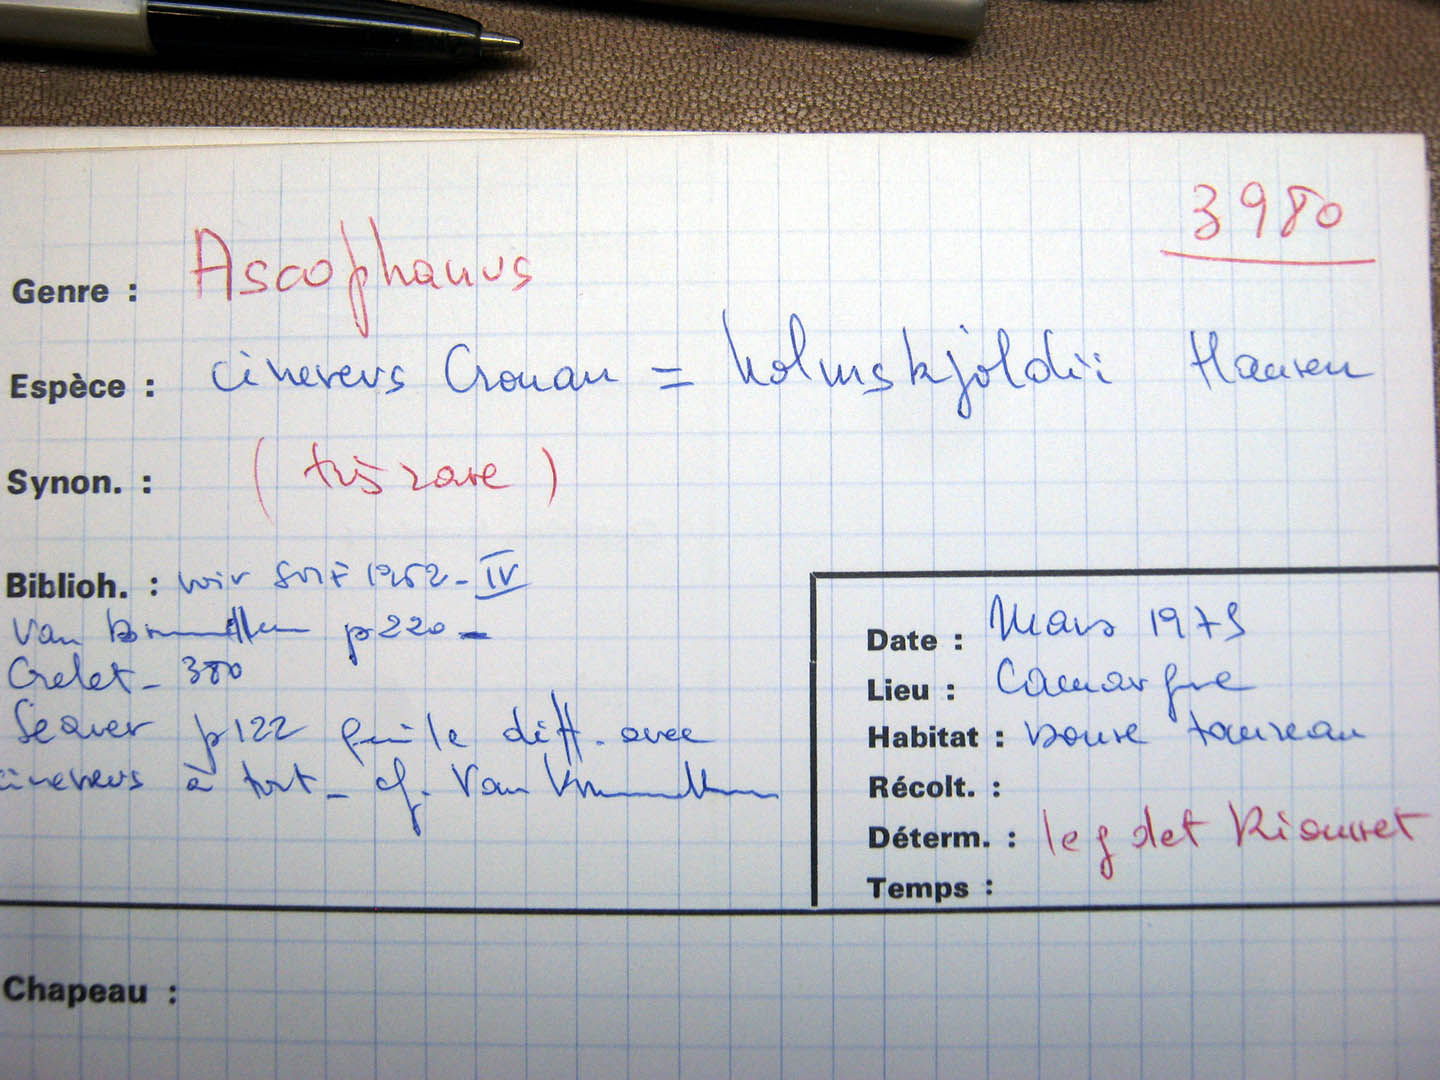 3980
Genre : Ascophanus
Espèce : cinereus Crouan = holmskjoldii Hansen
Synon. : (très rare)
Biblioh. : voir 1962 - IV
Van p 220 -
Grelet - 380
Seaver p 122 qui le diff. avec
cinereus à tort - cf. Van
Date : Mars 1975
Lieu : Camargue
Habitat : bouse taureau
Récolt. :
Déterm. : leg det Riousset
Temps :
Chapeau :